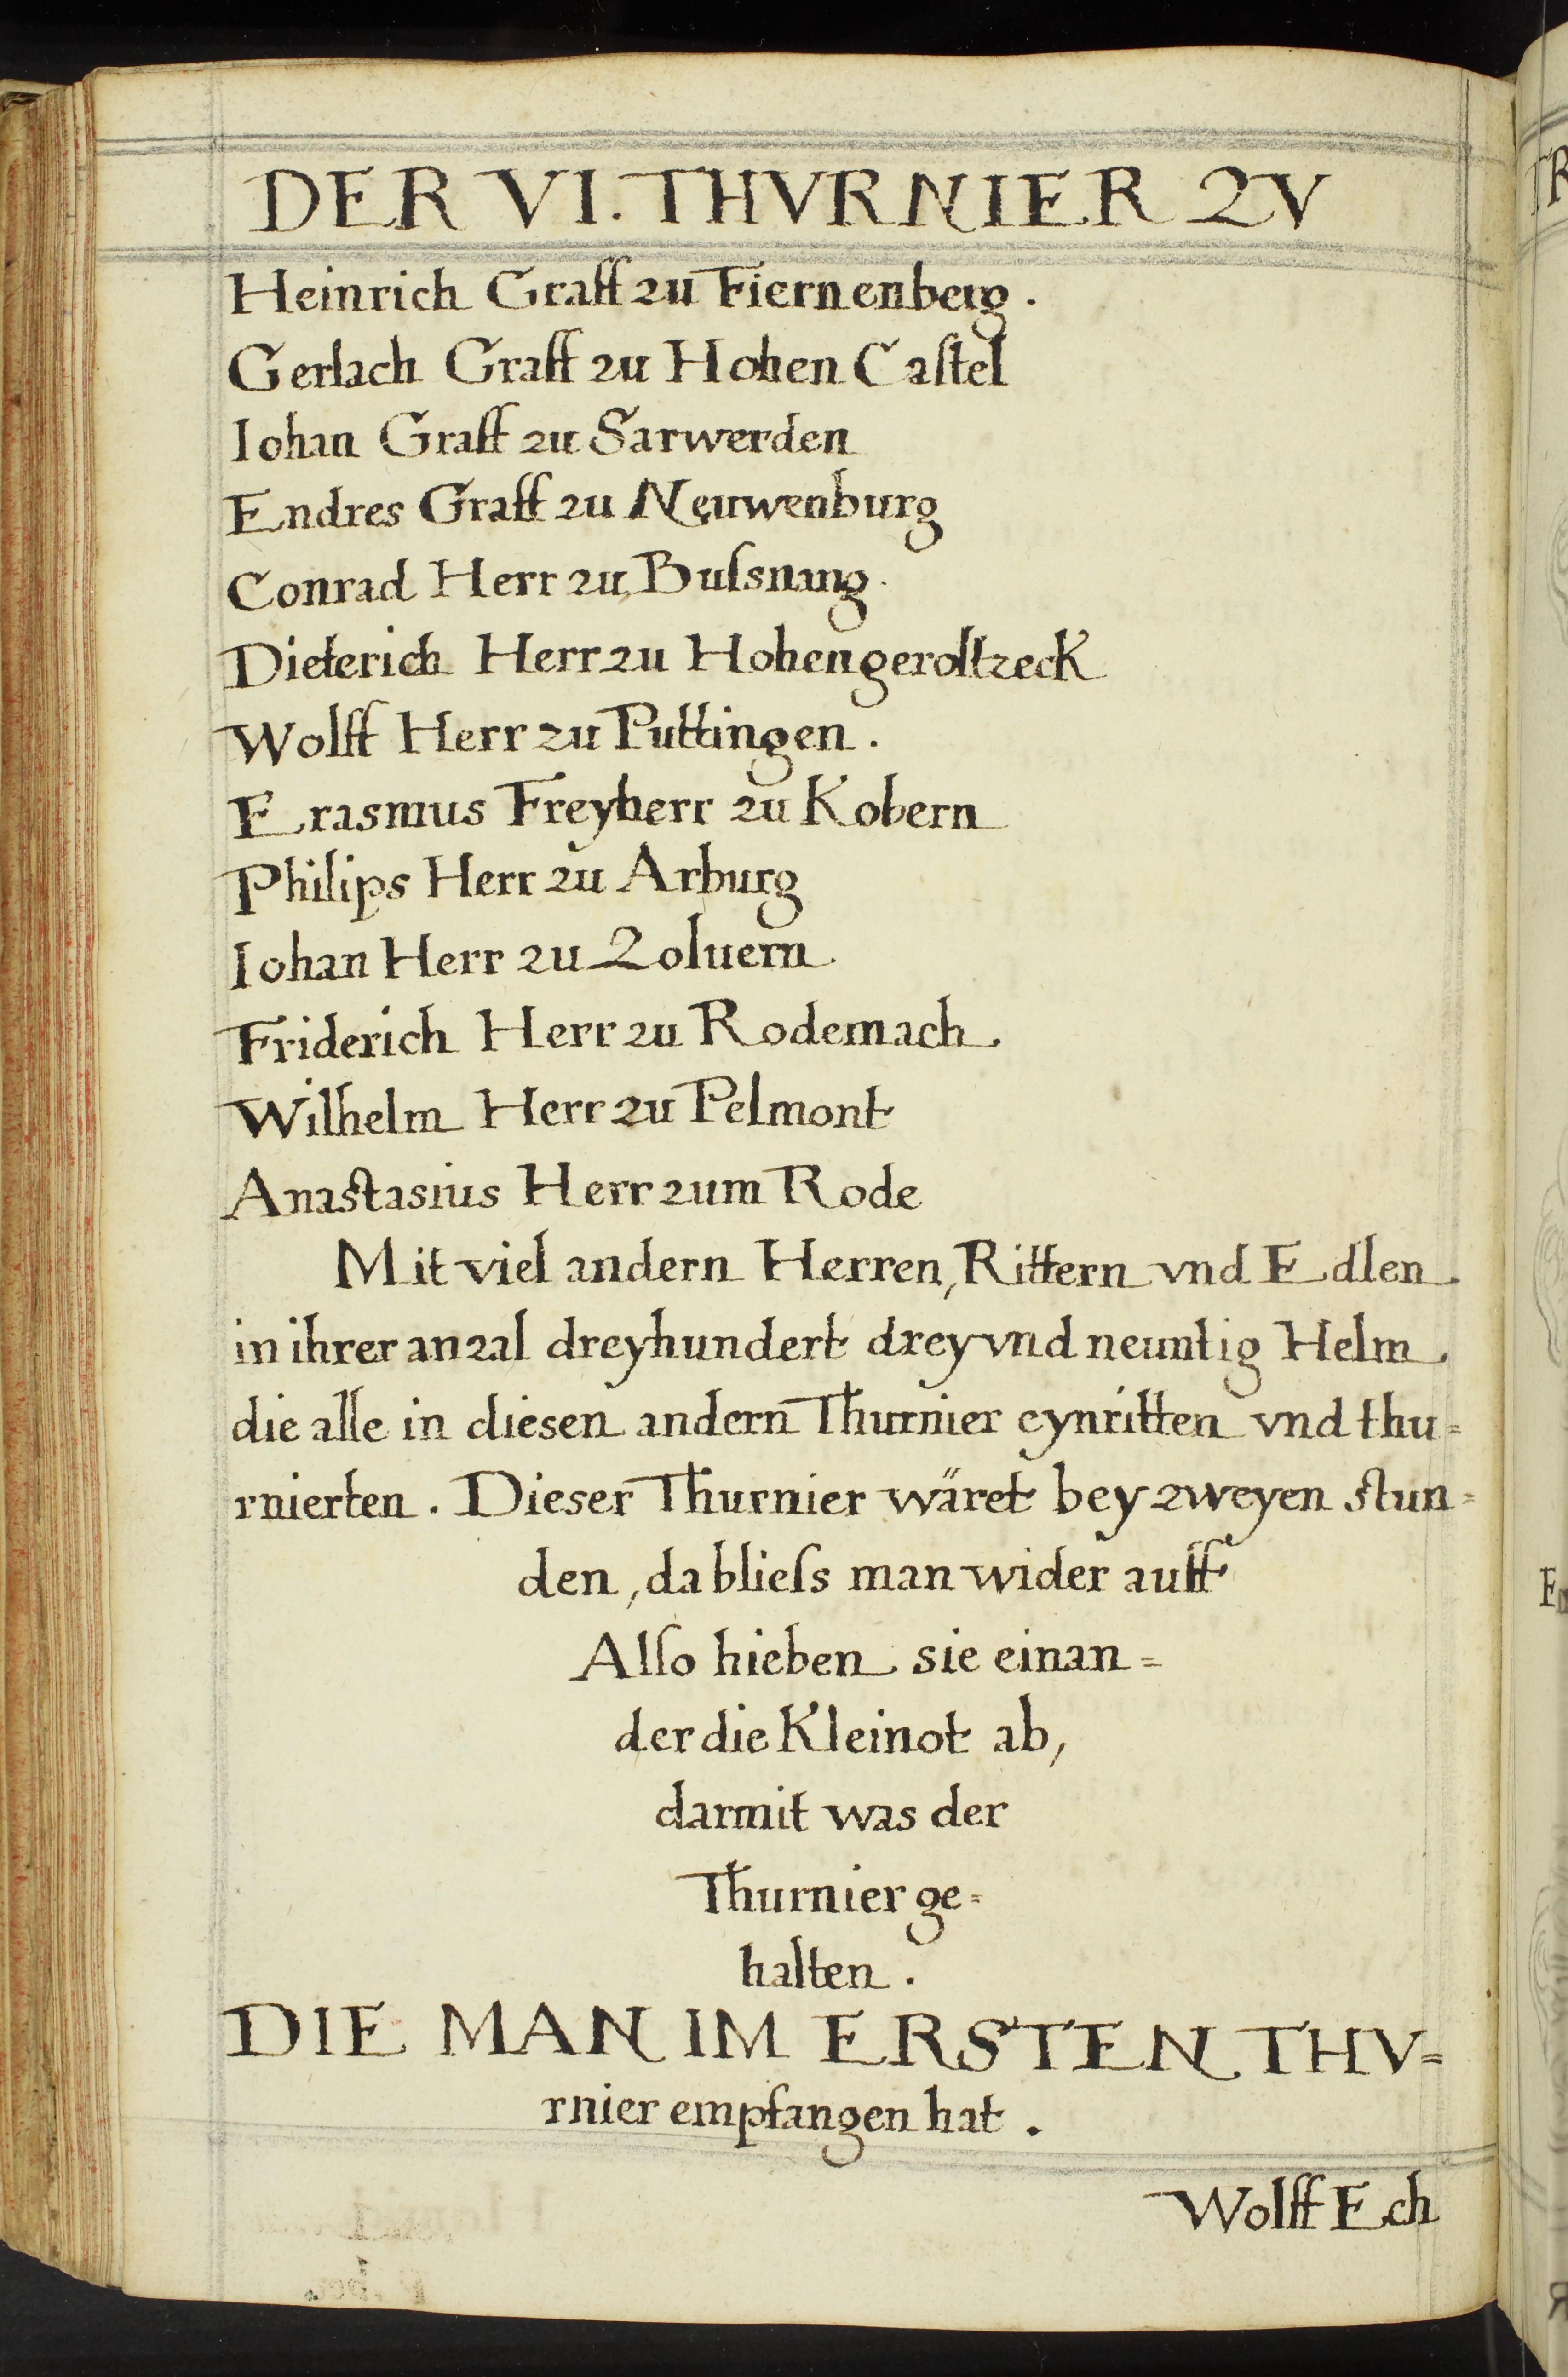 DER VI. THVRNIER ZV
Heinrich Graff zu Fiernenberg.
Gerlach Graff zu Hohen Caſtel
Iohan Graff zu Sarwerden
Endres Graff zu Neuwenburg
Conrad Herr zu Buſsnang.
Dieterich Herr zu Hohengeroltzeck
Wolff Herr zu Puttingen.
Erasmus Freyherr zu Kobern
Philips Herr zu Arburg
Iohan Herr zu Zoluern
Friderich Herr zu Rodemach.
Wilhelm Herr zu Pelmont
Anastasius Herr zum Rode
Mit viel andern Herren, Rittern vnd Edlen
in ihrer anzal dreyhundert drey vnd neuntig Helm
die alle in diesen andern Thurnier eynritten vnd thu=
rnierten. Dieser Thurnier wäret bey zweyen stun=
den, da blieſs man wider auff
Alſo hieben sie einan=
der die Kleinot ab,
darmit was der
Thurnier ge=
halten.
DIE MAN IM ERSTEN THV=
rnier empfangen hat.
Wolff Ech